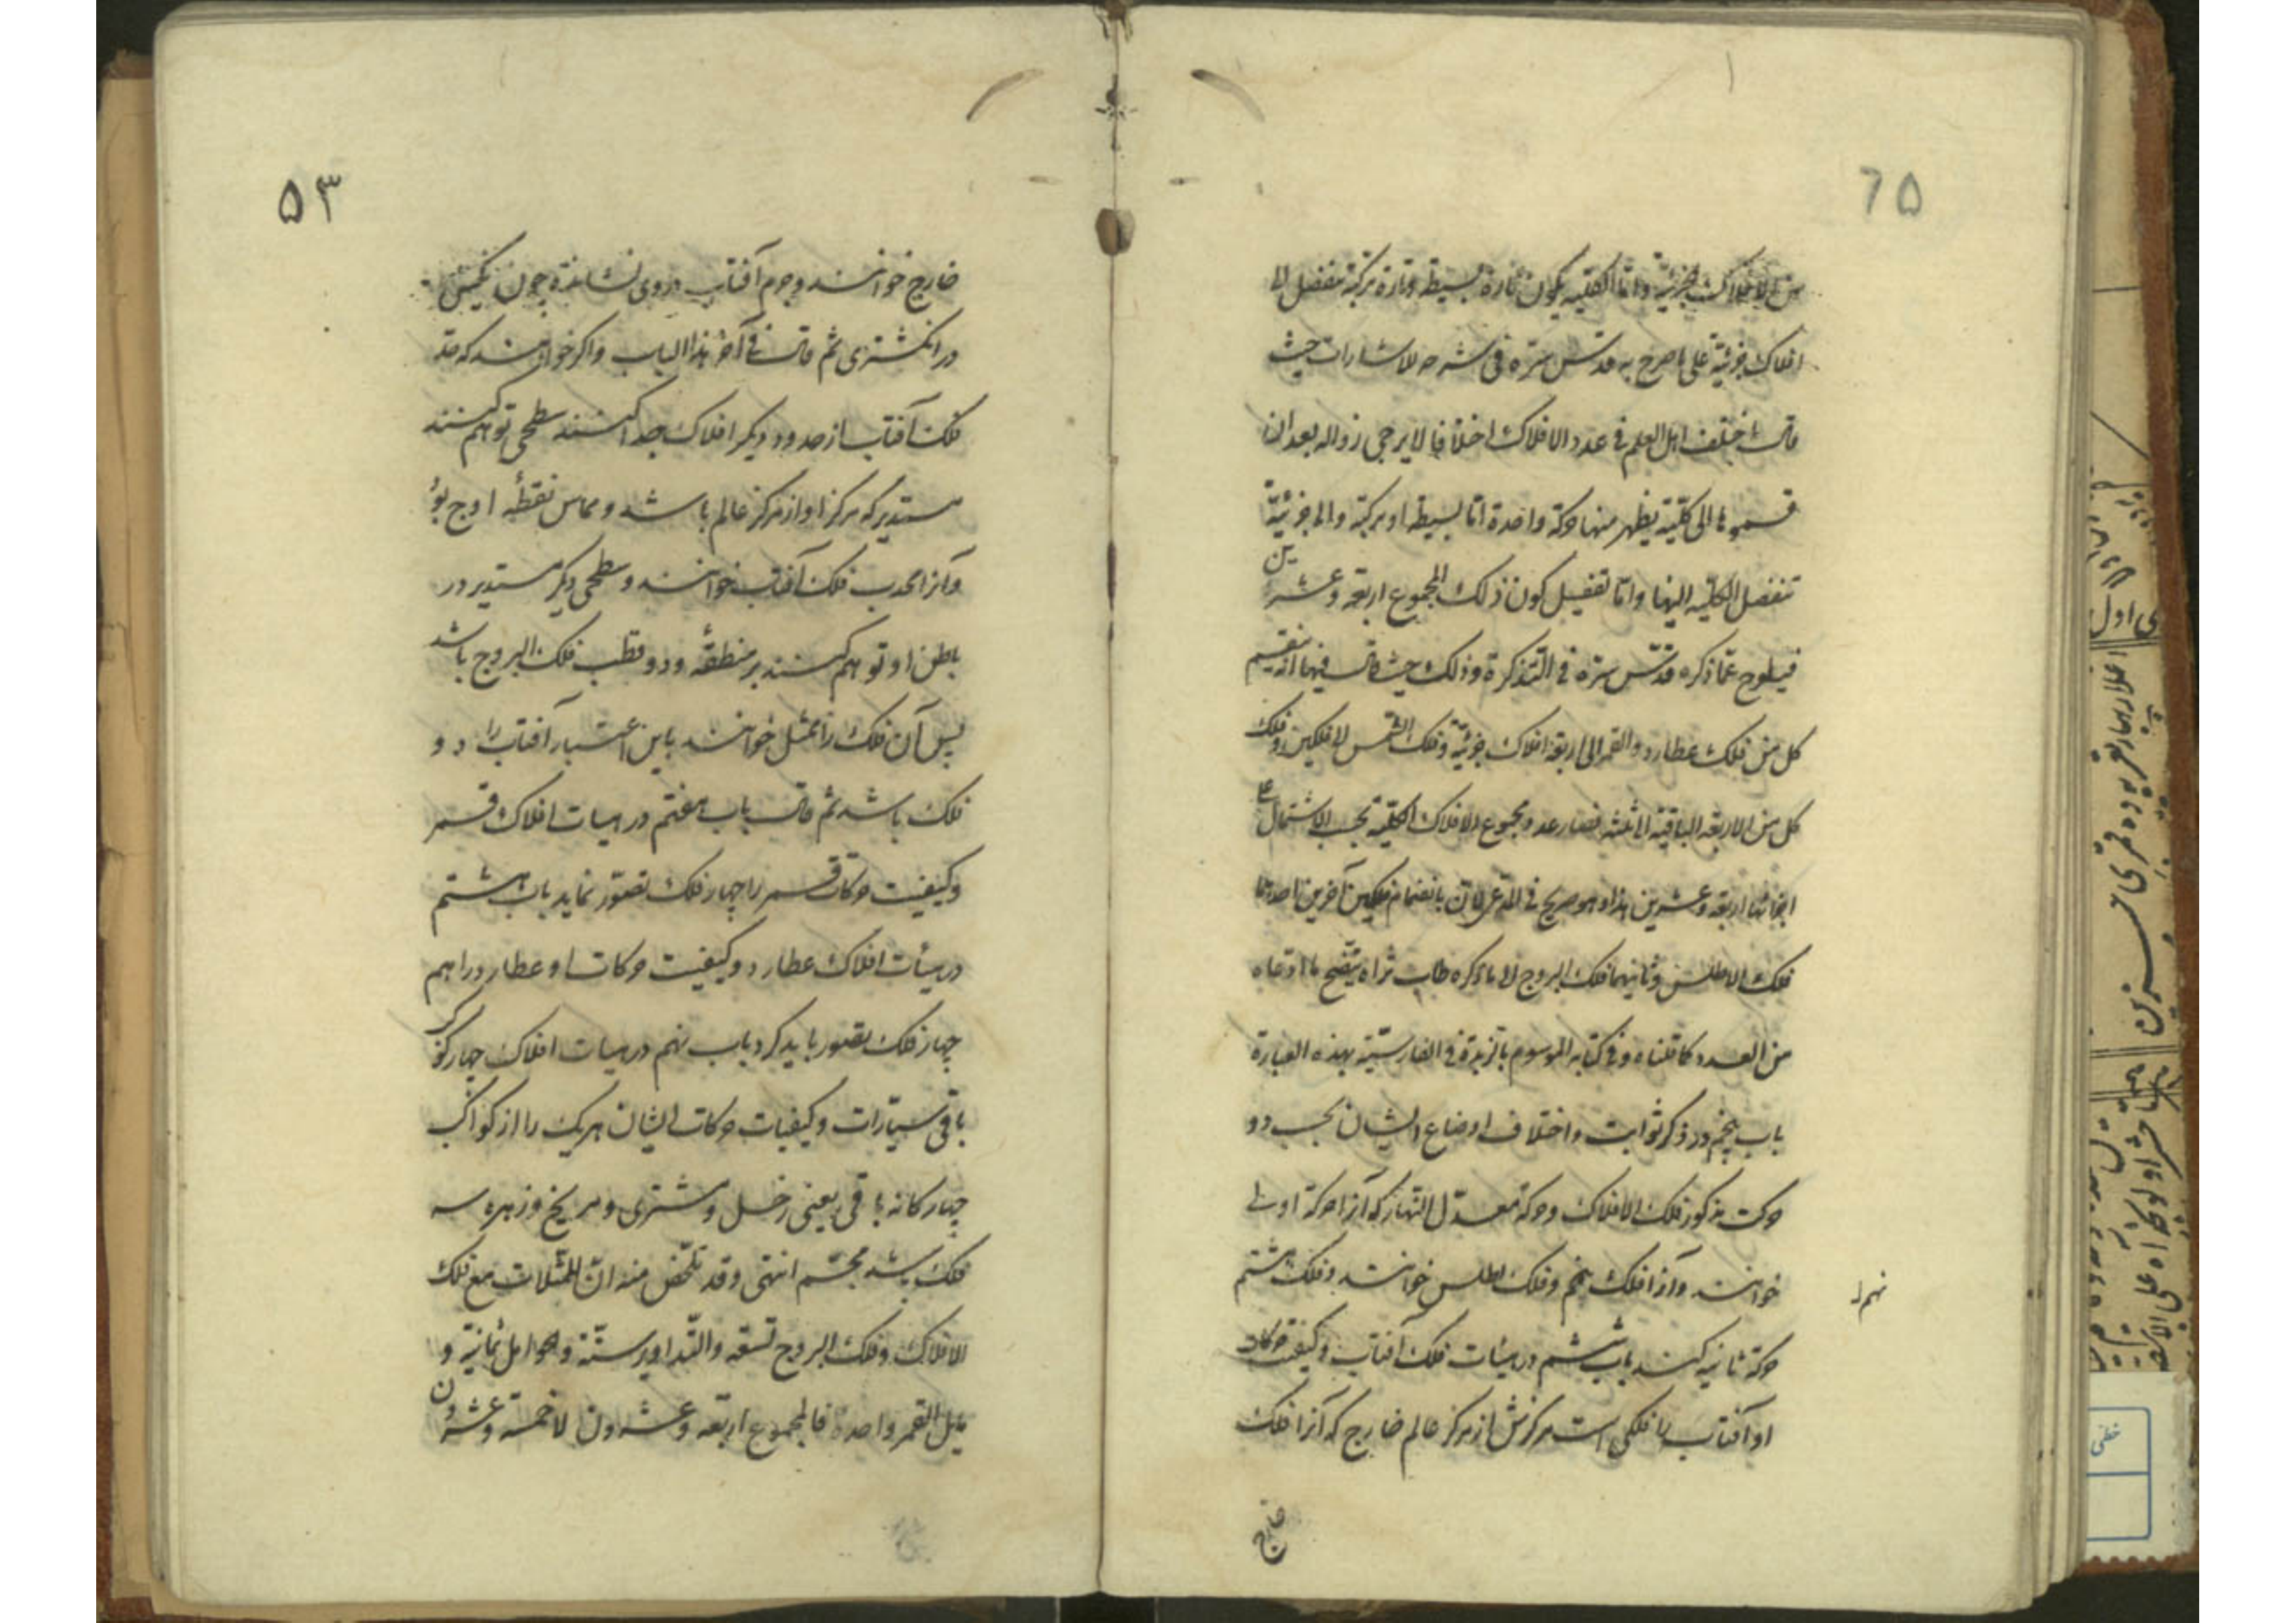 ٦٥
من الافلاك الجزئیة واما الکلیة یکون تارة بسیطة وتارة مرکبة تنفصل الی
افلاك جزئیة علی ما صرح به قدس سره فی شرحه للاشارات حیث
قال اختلف اهل العلم فی عدد الافلاك اختلافا لا یرجی زواله بعد ان
قسموها الی کلیة یظهر منها حرکة واحدة اما بسیطة او مرکبة والی جزئیة
تنفصل الکلیة الیها واما تفصیل کون ذلك المجموع اربعة وعشرین
فیلوح عما ذکره قدّس سرّه فی التذکرة وذلك حیث قال فیها انه ینقسم
کل من فلك عطارد والقمر الی اربعة افلاك جزئیة وفلك الشمس لا فلکین وفلك
کل من الاربعة الباقیة الی ثلثة فصار عدد مجموع الافلاك الکلیة بحسب الاشتمال علی
اجزائها اربعة وعشرین هذا وهو صریح فی المدعی لان بانضمام فلکین آخرین احدهما
فلك الاطلس وثانیهما فلك البروج الی ما ذکره طاب ثراه یتضح ما ادعاه
من العدد کما قلناه وفی کتابه الموسوم بالزبدة فی الفارسیّة بهذه العبارة
باب پنجم در ذکر ثوابت واختلاف اوضاع ایشان بحسب دو
حرکت مذکور فلك الافلاك وحرکة معدّل النهار که آنرا حرکة اولی
خوانند وآنرا فلك نهم وفلك اطلس خوانند وفلك هشتم
نهم
حرکة ثانیه کنند باب ششم در هیئات فلك آفتاب وکیفیت حرکات
او آفتاب را فلکی است مرکزش از مرکز عالم خارج که آنرا فلك
خارج
۵۳
خارج خوانند وجرم آفتاب در وی نشانده چون نگین
در انکشتری ثم قال فی آخر هذا الباب واکر خواهند که حد
فلك آفتاب از حدود دیکر افلاك جدا کنند سطحی توهم کنند
مستدیر که مرکز او از مرکز عالم باشد ومماس نقطهٔ اوج بود
وآنرا محدب فلك آفتاب خوانند وسطحی دیکر مستدیر در
باطن او توهم کنند بر منطقهٔ ودو قطب فلك البروج باشد
پس آن فلك را ممثل خوانند باین اعتبار آفتاب را دو
فلك باشد ثم قال باب هفتم در هیات افلاك قمر
وکیفیت حرکات قمر را چهار فلك تصوّر نماید باب هشتم
در هیئات افلاك عطارد وکیفیت حرکات او عطارد را هم
چهار فلك تصور باید کرد باب نهم در هیات افلاك چهار کوکب
باقی سیّارات وکیفیات حرکات ایشان هریك را از کواکب
چهارکانه باقی یعنی زحل ومشتری ومریخ وزهره سه
فلك باشد مجسّم انتهی وقد تلخّص منه انّ الممثلات مع فلك
الافلاك وفلك البروج تسعة والتداویر ستّة والحوامل ثمانیة و
مایل القمر واحدة فالمجموع اربعة وعشرون لا خمسة وعشرون
ی اول
خطی